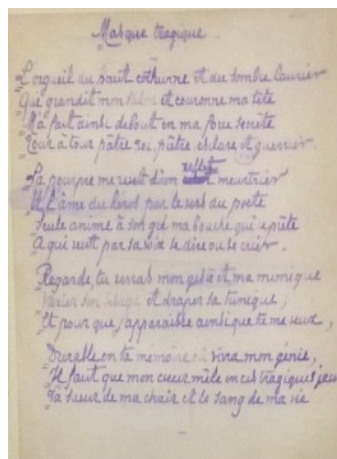 Masque tragique.
L'orgueil du haut cothurne et du sombre laurier
Qui grandit mon et couronne ma tête
M'a fait ainsi debout en ma force secrète
Tour à tour pâtre roi, prêtre esclave et guerrier.
La pourpre me revêt d'un reflet meurtrier
Et l'âme du héros par le vers du poète
Seule anime à son gré ma bouche qui répète
A qui veut par sa voix se dire ou se crier.
Regarde, tu verras mon geste et ma mimique
Varier son visage et draper sa tunique ;
Et pour que j'apparaisse ainsi que tu me veux,
Durable en ta mémoire où vivra mon génie,
Il faut que mon cœur mêle en ces tragiques jeux
La sueur de ma chair et le sang de ma vie